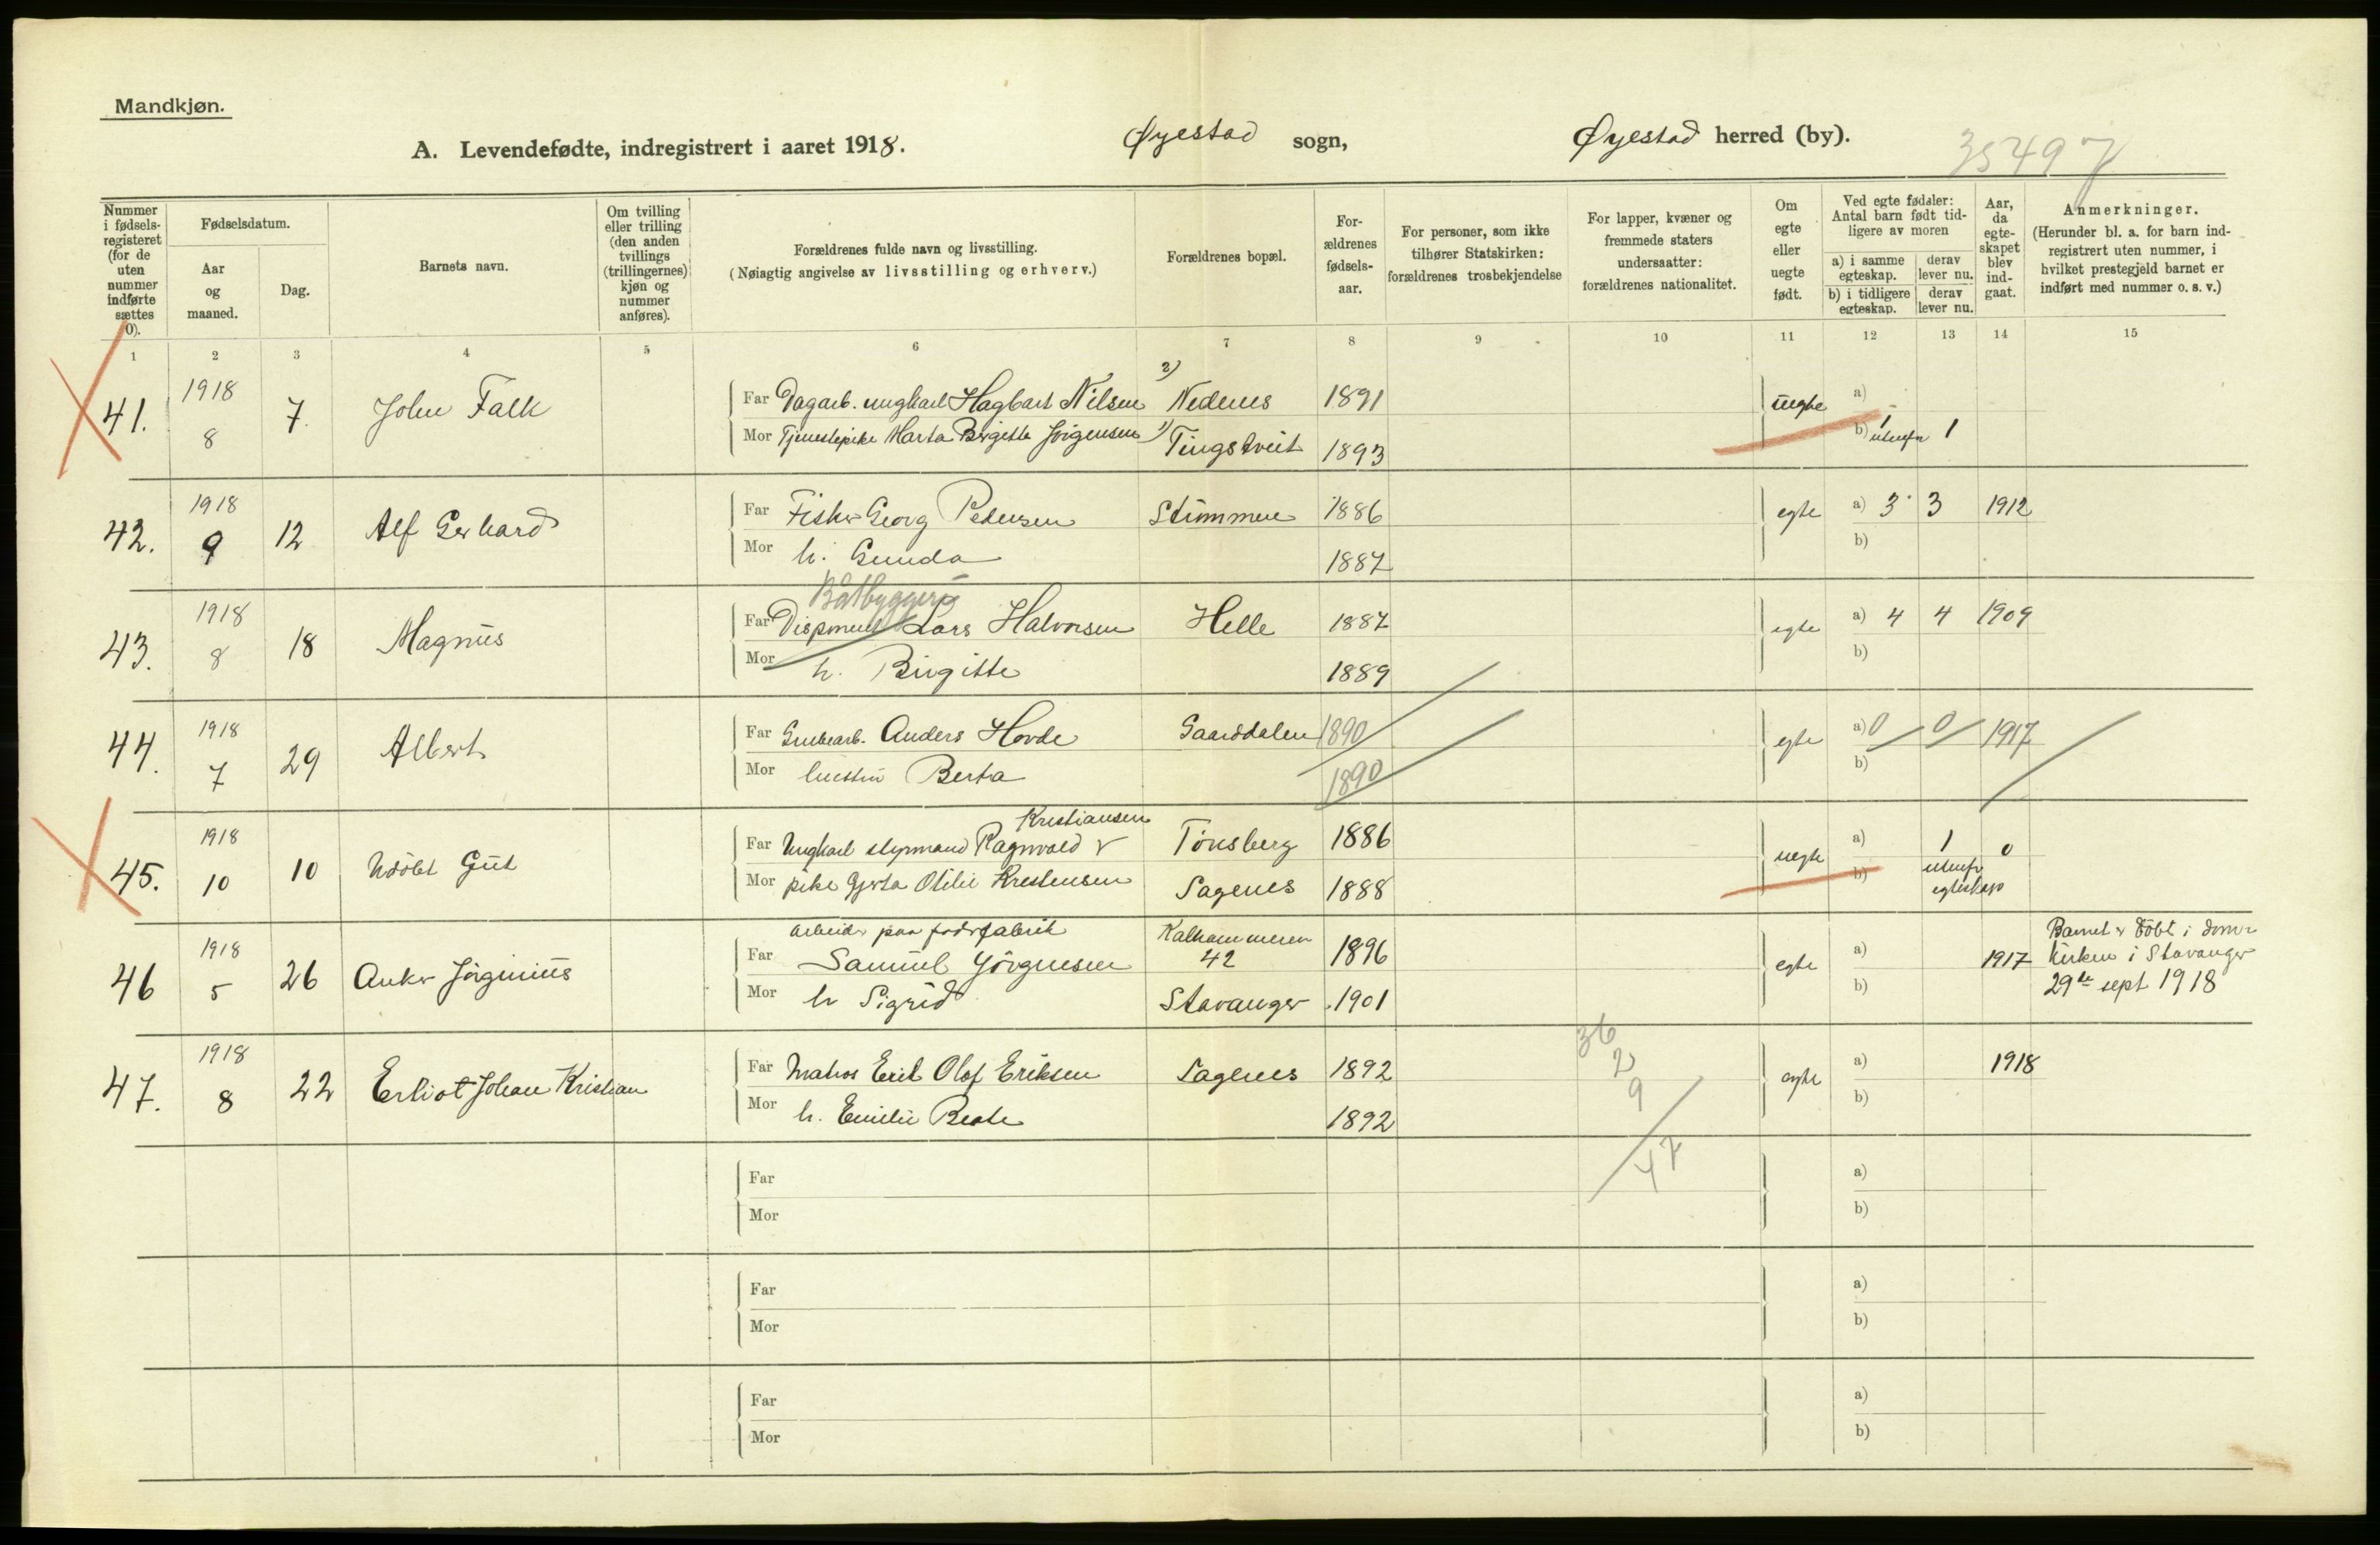 Mandkjøn.
A. Levendefødte, indregistrert i aaret 1918. Øyestad sogn, Øyestad herred (by).
35497
Nummer i fødsels-registeret (for de uten nummer indførte sættes 0).
Fødselsdatum.
Aar og maaned.
Dag.
Barnets navn.
Om tvilling eller trilling (den anden tvillings (trillingernes) kjøn og nummer anføres).
Forældrenes fulde navn og livsstilling.
(Nøiagtig angivelse av livsstilling og erhverv.)
Forældrenes bopæl.
For-ældrenes fødsels-aar.
For personer, som ikke tilhører Statskirken: forældrenes trosbekjendelse
For lapper, kvæner og fremmede staters undersaatter: forældrenes nationalitet.
Om egte eller uegte født.
Ved egte fødsler: Antal barn født tid-ligere av moren
a) i samme egteskap.
derav lever nu.
b) i tidligere egteskap.
derav lever nu.
Aar, da egte-skapet blev ind-gaat.
Anmerkninger.
(Herunder bl. a. for barn ind-registrert uten nummer, i hvilket prestegjeld barnet er indført med nummer o. s. v.)
1 2 3 4 5 6 7 8 9 10 11 12 13 14 15
41. 1918 8 7. John Falk
Far Dagarb. ungkarl Hagbart Nilsen 2) Nedenes 1891 uegte a)
Mor Tjenestepike Marta Birgitte Jörgensen 1) Tingstveit 1893 b) 1 utenfor 1
42. 1918 9 12 Alf Gerhard
Far Fisker Georg Pedersen Strömmen 1886 egte a) 3 3 1912
Mor h. Gunda 1887 b)
43. 1918 8 18 Magnus
Båtbyggeri
Far Lars Halvorsen Helle 1887 egte a) 4 4 1909
Mor h. Birgitte 1889 b)
44. 1918 7 29 Albert
Far Grubearb. Anders Hovde Gaarddalen 1890 egte a) 0 0 1917
Mor hustru Berta 1890 b)
45. 1918 10 10 Udöbt Gut
Kristiansen
Far Ungkarl styrmand Ragnvald Tönsberg 1886 uegte a) 1 0
Mor pike Gjerta Otilie Kristensen Sagenes 1888 b) utenfor egteskap
46 1918 5 26 Anker Jörginius
Arbeider paa
Far Samuel Jörgensen Kalhammeren 42 1896 egte a) 1917
Mor h Sigrid Stavanger 1901 b)
Barnet er döbt i dom-
kirken i Stavanger
29de sept 1918
47. 1918 8 22 Erliot Johan Kristian
Far Matros Erik Olaf Eriksen Sagenes 1892 egte a) 1918
Mor h. Emilie Beate 1892 b)
36
2
9
47
Far a)
Mor b)
Far a)
Mor b)
Far a)
Mor b)